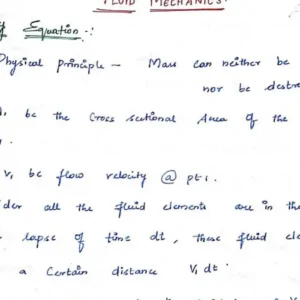 FLUID MECHANICS.
Equation :
Physical principle – Mass can neither be
nor be destr
be the Cross Sectional Area of the
V₁ be flow velocity @ pt₁.
der all the fluid elements are in the
lapse of time dt, these fluid ele
a Certain distance V₁ dt.